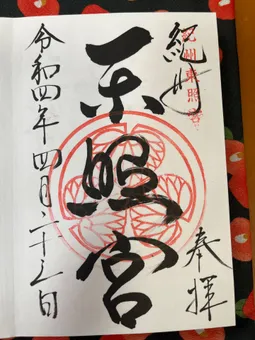 紀州
紀州東照宮
奉拝
東照宮
令和四年四月二十日